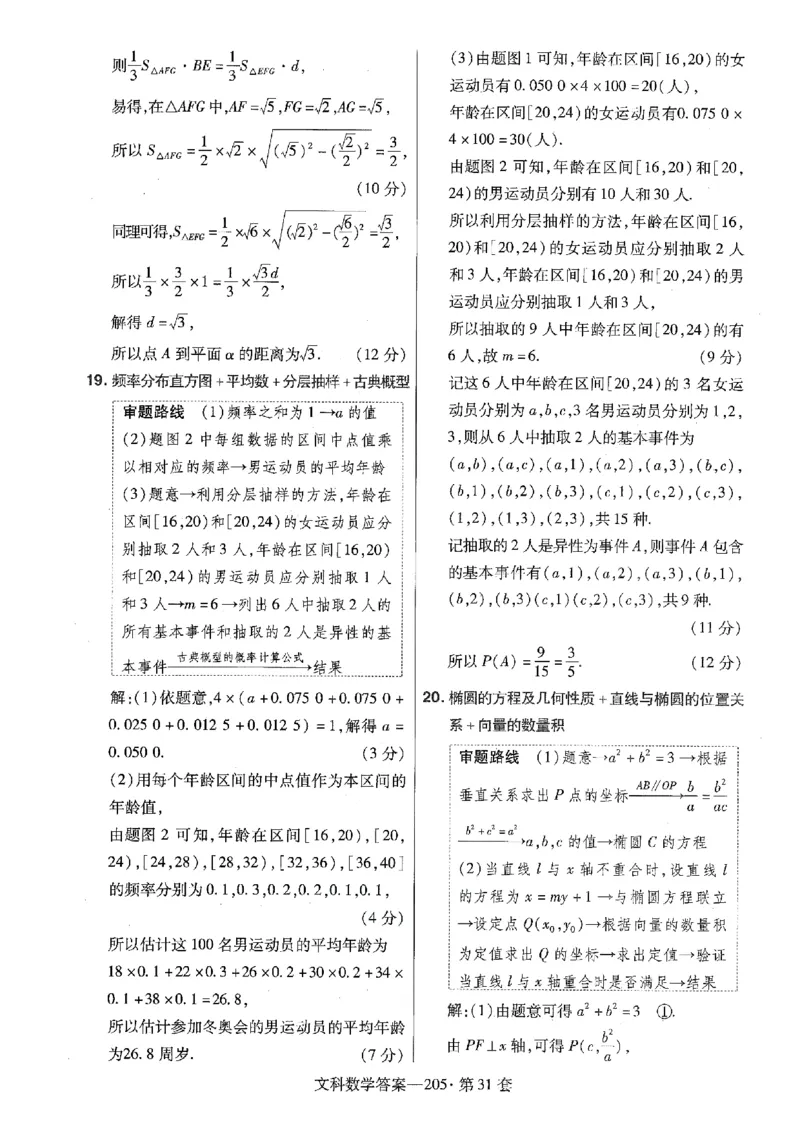 则1/3S△AFG·BE=1/3S△EFG·d,
易得,在△AFG中,AF=√5,FG=√2,AG=√5,
所以S△AFG=1/2×√2×√((√5)²-(√2/2)²)=3/2,
(10分)
同理可得,S△EFG=1/2×√6×√((√2)²-(√6/2)²)=√3/2,
所以1/3×3/2×1=1/3×√3d/2,
解得d=√3,
所以点A到平面α的距离为√3. (12分)
19. 频率分布直方图+平均数+分层抽样+古典概型
审题路线 (1)频率之和为1→a的值
(2)题图2中每组数据的区间中点值乘
以相对应的频率→男运动员的平均年龄
(3)题意→利用分层抽样的方法,年龄在
区间[16,20)和[20,24)的女运动员应分
别抽取2人和3人,年龄在区间[16,20)
和[20,24)的男运动员应分别抽取1人
和3人→m=6→列出6人中抽取2人的
所有基本事件和抽取的2人是异性的基
本事件 古典概型的概率计算公式→结果
解:(1)依题意,4×(a+0.075 0+0.075 0+
0.025 0+0.012 5+0.012 5)=1,解得a=
0.050 0. (3分)
(2)用每个年龄区间的中点值作为本区间的
年龄值,
由题图2可知,年龄在区间[16,20),[20,
24),[24,28),[28,32),[32,36),[36,40]
的频率分别为0.1,0.3,0.2,0.2,0.1,0.1,
(4分)
所以估计这100名男运动员的平均年龄为
18×0.1+22×0.3+26×0.2+30×0.2+34×
0.1+38×0.1=26.8,
所以估计参加冬奥会的男运动员的平均年龄
为26.8周岁. (7分)
(3)由题图1可知,年龄在区间[16,20)的女
运动员有0.050 0×4×100=20(人),
年龄在区间[20,24)的女运动员有0.075 0×
4×100=30(人).
由题图2可知,年龄在区间[16,20)和[20,
24)的男运动员分别有10人和30人.
所以利用分层抽样的方法,年龄在区间[16,
20)和[20,24)的女运动员应分别抽取2人
和3人,年龄在区间[16,20)和[20,24)的男
运动员应分别抽取1人和3人,
所以抽取的9人中年龄在区间[20,24)的有
6人,故m=6. (9分)
记这6人中年龄在区间[20,24)的3名女运
动员分别为a,b,c,3名男运动员分别为1,2,
3,则从6人中抽取2人的基本事件为
(a,b),(a,c),(a,1),(a,2),(a,3),(b,c),
(b,1),(b,2),(b,3),(c,1),(c,2),(c,3),
(1,2),(1,3),(2,3),共15种.
记抽取的2人是异性为事件A,则事件A包含
的基本事件有(a,1),(a,2),(a,3),(b,1),
(b,2),(b,3)(c,1)(c,2),(c,3),共9种.
(11分)
所以P(A)=9/15=3/5. (12分)
20. 椭圆的方程及几何性质+直线与椭圆的位置关
系+向量的数量积
审题路线 (1)题意→a²+b²=3→根据
垂直关系求出P点的坐标 AB∥OP→ b/a=b²/ac
b²+c²=a²→a,b,c的值→椭圆C的方程
(2)当直线l与x轴不重合时,设直线l
的方程为x=my+1→与椭圆方程联立
→设定点Q(x₀,y₀)→根据向量的数量积
为定值求出Q的坐标→求出定值→验证
当直线l与x轴重合时是否满足→结果
解:(1)由题意可得a²+b²=3 ①.
由PF⊥x轴,可得P(c,b²/a),
文科数学答案—205·第31套